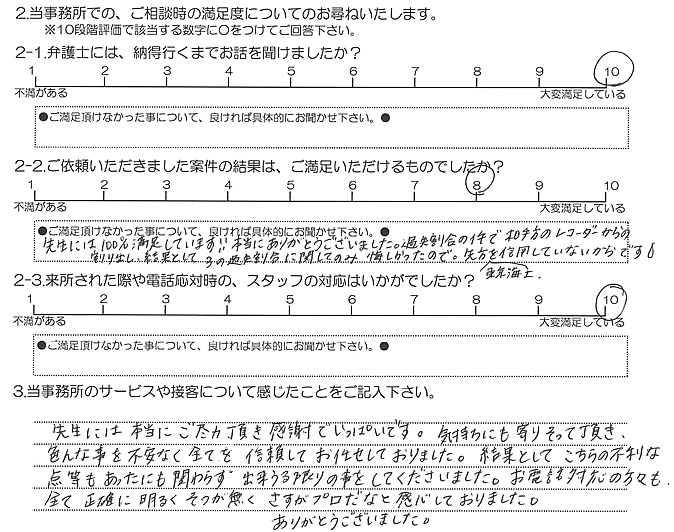 2.当事務所での、ご相談時の満足度についてのお尋ねいたします。
※10段階評価で該当する数字に○をつけてご回答下さい。
2-1.弁護士には、納得行くまでお話を聞けましたか？
1 2 3 4 5 6 7 8 9 10
不満がある 大変満足している
●ご満足頂けなかった事について、良ければ具体的にお聞かせ下さい。●
2-2.ご依頼いただきました案件の結果は、ご満足いただけるものでしたか？
1 2 3 4 5 6 7 8 9 10
不満がある 大変満足している
●ご満足頂けなかった事について、良ければ具体的にお聞かせ下さい。●
先生には100%満足しています!!本当にありがとうございました。過失割合の件で相手方のレコーダーからの
割り出し、結果として、その過失割合に関してのみ悔しかったので。先方を信用していないからです
東京海上.
2-3.来所された際や電話応対時の、スタッフの対応はいかがでしたか？
1 2 3 4 5 6 7 8 9 10
不満がある 大変満足している
●ご満足頂けなかった事について、良ければ具体的にお聞かせ下さい。●
3.当事務所のサービスや接客について感じたことをご記入下さい。
先生には本当にご尽力頂き感謝でいっぱいです。気持ちにも寄りそって頂き、
色んな事を不安なく全てを信頼してお任せしておりました。結果としてこちらの不利な
点等もあったにも関わらず出来うる限りの事をしてくださいました。お電話対応の方々も、
全て正確に明るくそつが無くさすがプロだなと感心しておりました。
ありがとうございました。